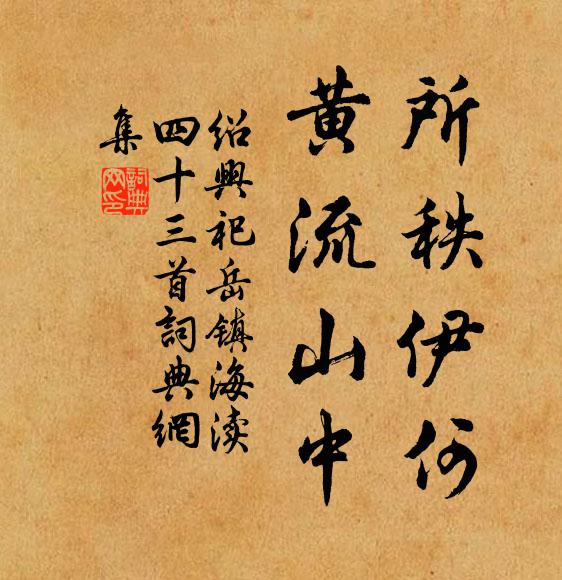 所秩伊何
黄流山中
绍興祀岳镇海渎
四十三首詞典網
集
詞典網印